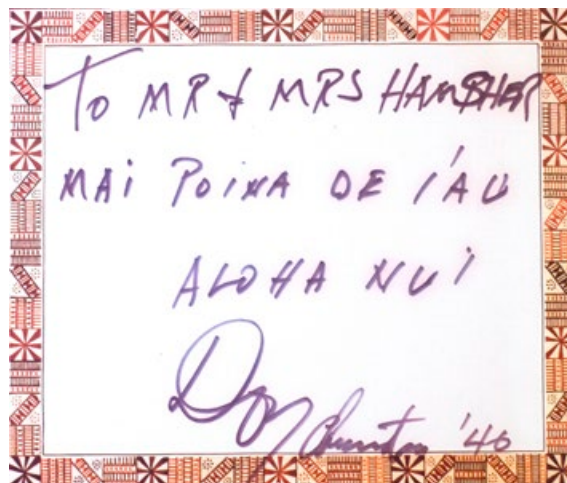 To MR & MRS HAMSHER
MAI POINA OE I'AU
ALOHA NUI
'40